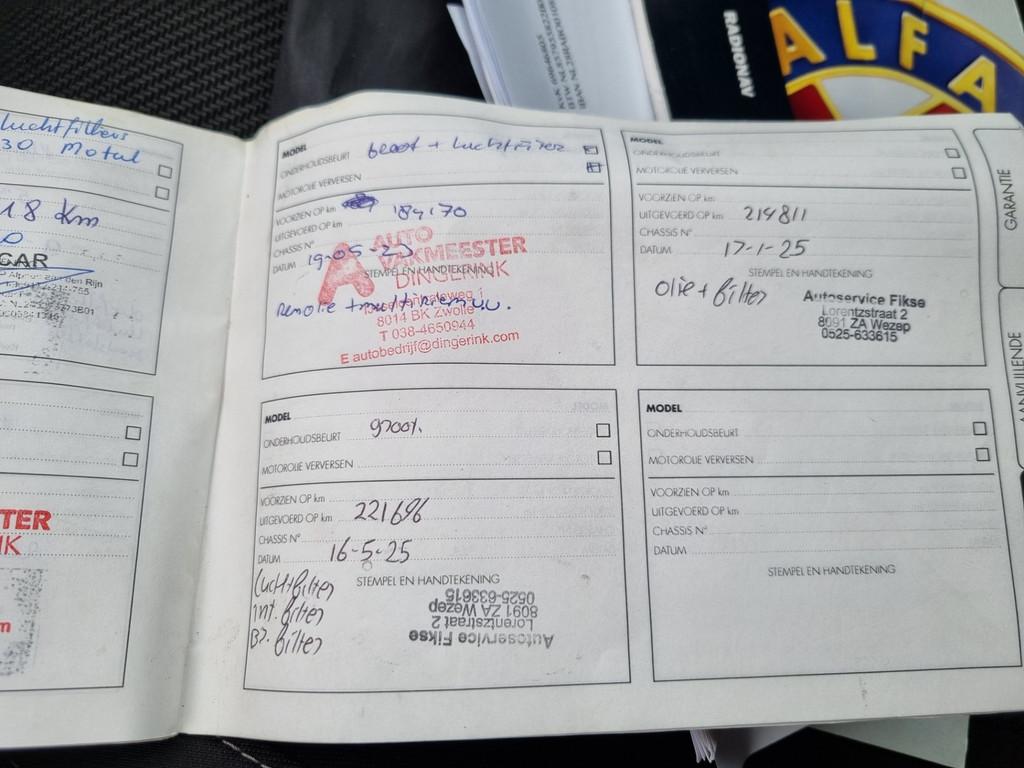 KVK
RADIONAV
ALFA
luchtfilters
30 Motul
18 Km
CAR
TER
MODEL
ONDERHOUDSBEURT groot + luchtfilter
MOTOROLIE VERVERSEN
VOORZIEN OP km
UITGEVOERD OP km 184170
CHASSIS N°
DATUM 19-05-23
AUTO
VAKMEESTER
DINGERINK
STEMPEL EN HANDTEKENING
Remolie + multiriem
8014 BK Zwolle
T 038-4650944
E autobedrijf@dingerink.com
MODEL
ONDERHOUDSBEURT
MOTOROLIE VERVERSEN
VOORZIEN OP km
UITGEVOERD OP km 214811
CHASSIS N°
DATUM 17-1-25
STEMPEL EN HANDTEKENING
olie + filter
Autoservice Fikse
Lorentzstraat 2
8091 ZA Wezep
0525-633615
MODEL
ONDERHOUDSBEURT groot.
MOTOROLIE VERVERSEN
VOORZIEN OP km
UITGEVOERD OP km 221696
CHASSIS N°
DATUM 16-5-25
STEMPEL EN HANDTEKENING
luchtfilter
int. filter
Br. filter
Autoservice Fikse
Lorentzstraat 2
8091 ZA Wezep
0525-633615
MODEL
ONDERHOUDSBEURT
MOTOROLIE VERVERSEN
VOORZIEN OP km
UITGEVOERD OP km
CHASSIS N°
DATUM
STEMPEL EN HANDTEKENING
GARANTIE
AANVULLENDE